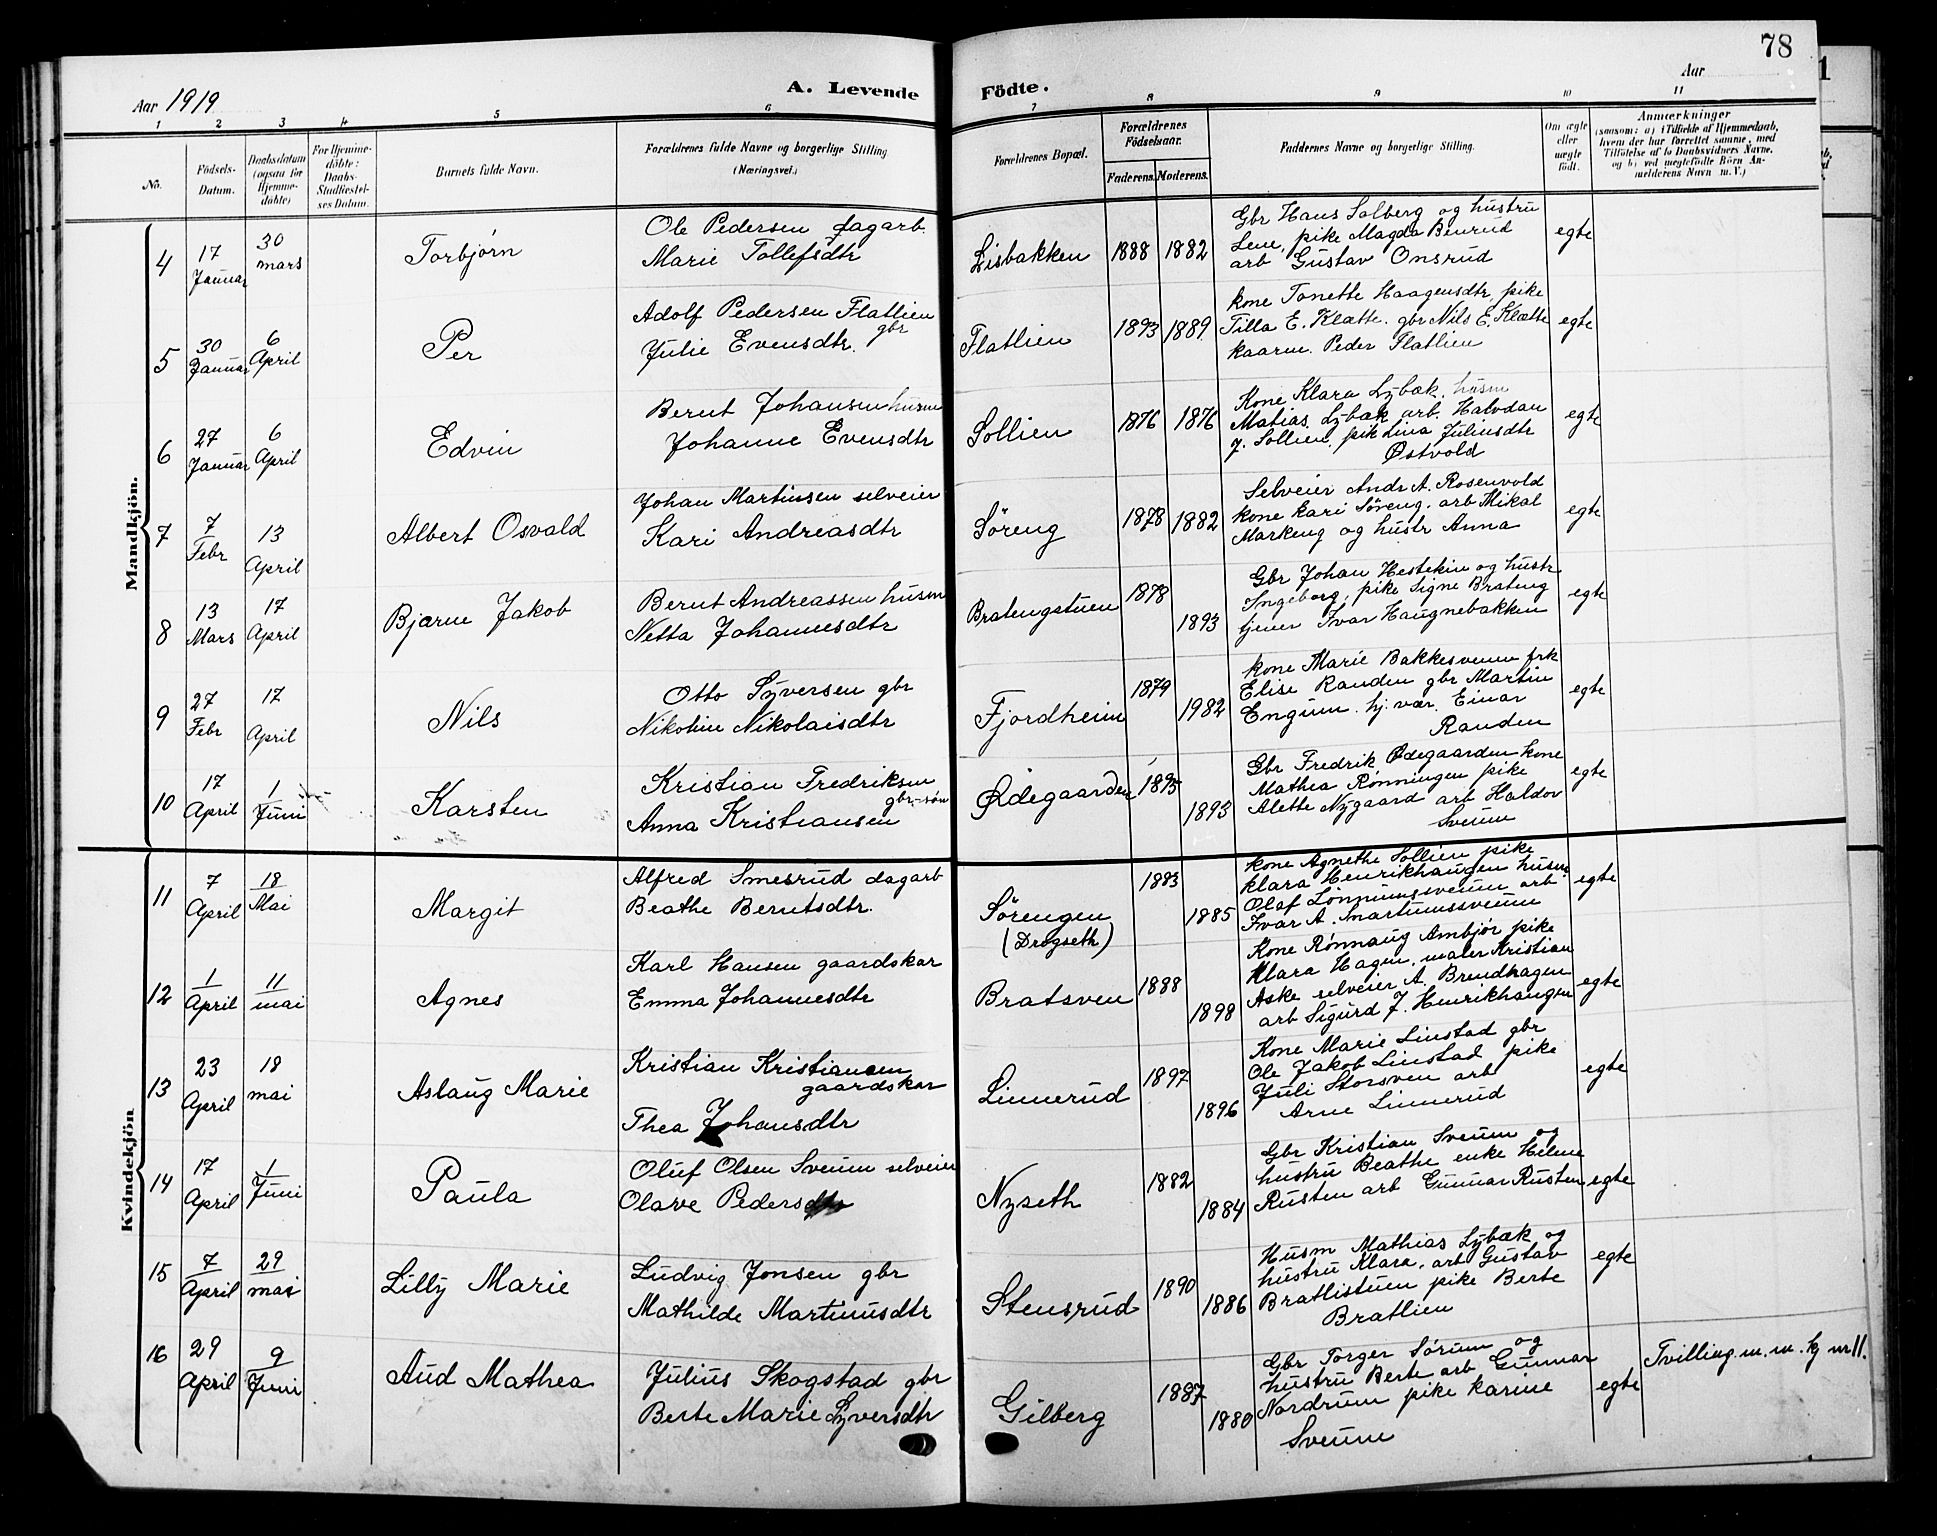 78
Aar 1919
A. Levende Födte.
Aar
1 2 3 4 5 6 7 8 9 10 11
No.
Födsels-Datum.
Daabsdatum (ogsaa for Hjemmedöbte)
For Hjemmedöbte: Daabs-Stadfestelses Datum.
Barnets fulde Navn.
Forældrenes fulde Navne og borgerlige Stilling (Næringsvei.)
Forældrenes Bopæl.
Forældrenes Födselsaar.
Faderens. Moderens.
Faddernes Navne og borgerlige Stilling.
Om ægte eller uægte födt.
Anmærkninger
(saasom: a) i Tilfælde af Hjemmedaab, hvem der har forrettet samme, med Tilföielse af to Daabsvidners Navne, og b) ved uægtefödte Börn Anmelderens Navn m. V.)
Mandkjön.
4
17 Januar
30 mars
Torbjørn
Ole Pedersen dagarb.
Marie Tollefsdtr
Lisbakken
1888 1882
Gbr Hans Solberg og hustru
Lene, pike Magda Benrud
arb Gustav Onsrud
egte
5
30 Januar
6 April
Per
Adolf Pedersen Flatlien
gbr
Julie Evensdtr.
Flatlien
1893 1889
kone Tonette Haagensdtr, pike
Tilla E. Klætte. gbr Nils E. Klætte
kaarm. Peder Flatlien
egte
6
27 Januar
6 April
Edvin
Bernt Johansen husm
Johanne Evensdtr
Sollien
1876 1876
Kone Klara Lybæk, husm
Matias Lybæk arb. Halvdan
J. Sollien, pik Lina Juliusdtr
Østvold
egte
7
7 Febr
13 April
Albert Osvald
Johan Martinsen selveier
Kari Andreasdtr
Søreng
1878 1882
Selveier Andr A. Rosenvold
kone Kari Søreng, arb Mikal
Markeng og hustr Anna
egte
8
13 Mars
17 April
Bjarne Jakob
Bernt Andreassen husm
Netta Johannesdtr
Bratengstuen
1878 1893
Gbr Johan Hestekin og hustr
Ingeborg, pike Signe Brateng
tjener Ivar Haugnebakken
egte
9
27 Febr
17 April
Nils
Otto Syversen gbr
Nikoline Nikolaisdtr
Fjordheim
1879 1982
kone Marie Bakkesveen frk
Elise Randen gbr Martin
Engum. hj. vær. Einar
Randen
egte
10
17 April
1 Juni
Karsten
Kristian Fredriksen
gbr.-søn
Anna Kristiansen
Ødegaarden
1895 1893
Gbr Fredrik Ødegaarden kone
Mathea Rønningen pike
Alette Nygaard arb Haldor
Sveum
egte
Kvindekjön
11
7 April
18 Mai
Margit
Alfred Smesrud dagarb
Beathe Berntsdtr.
Sørengen
(Drogseth)
1883 1885
kone Agnethe Sollien pike
Klara Henrikhaugen husm
Olaf Lønnumsveum arb
Ivar A. Smartumssveum
egte
12
1 April
11 mai
Agnes
Karl Hansen gaardskar
Emma Johannesdtr
Bratsven
1888 1898
Kone Rønnaug Ambjør pike
Klara Hagen, maler Kristian
Aske selveier A. Brendhagen
arb Sigurd J. Henrikhaugen
egte
13
23 April
18 mai
Aslaug Marie
Kristian Kristiansen
gaardskar
Thea Johansdtr
Linnerud
1897 1896
Kone Marie Linstad gbr
Ole Jakob Linstad pike
Juli Storsven arb
Arne Linnerud
egte
14
17 April
1 Juni
Paula
Oluf Olsen Sveum selveier
Olave Pedersdtr
Nyseth
1882 1884
Gbr Kristian Sveum og
hustru Beathe enke Helene
Rusten arb Gunnar Rusten
egte
15
7 April
29 mai
Lilly Marie
Ludvig Jonsen gbr
Mathilde Martinusdtr
Stensrud
1890 1886
Husm Mathias Lybæk og
hustru Klara, arb Gustav
Bratlistuen pike Berte
Bratlien
egte
16
29 April
9 Juni
Aud Mathea
Julius Skogstad gbr
Berte Marie Syversdtr
Gilberg
1887 1880
Gbr Torger Sørum og
hustru Berte arb Gunnar
Nordrum pike Karine
Sveum
egte
Tvilling m. m. kj nr 11.